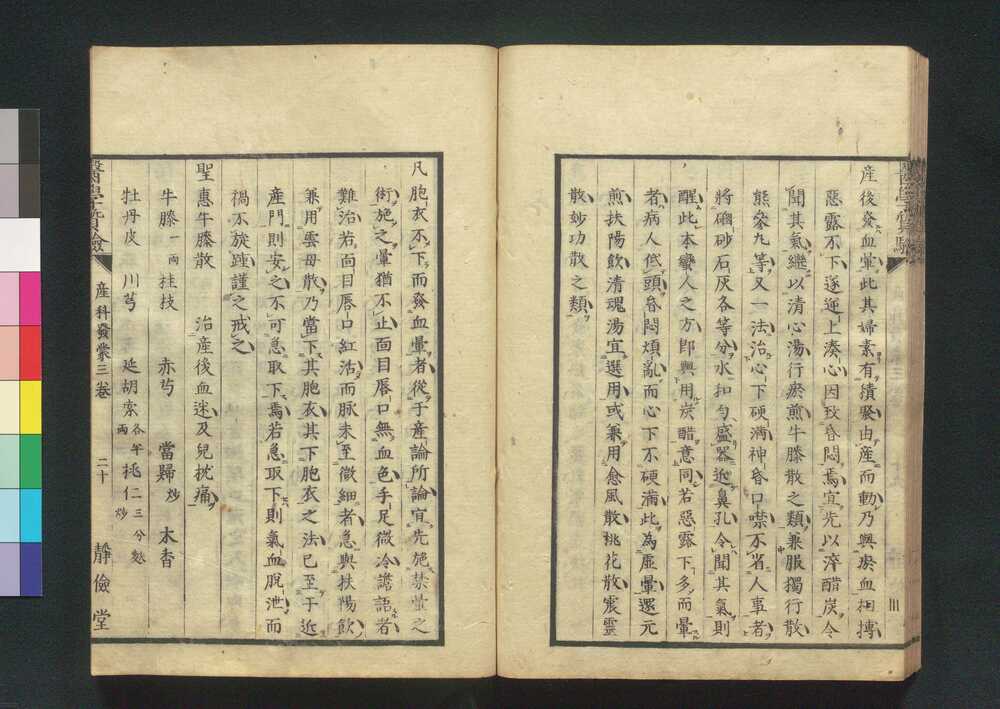 産後發血暈此其婦素有積聚由産而動乃與瘀血相搏
惡露不下遂逆上湊心因致昏悶焉宜先以淬醋炭令
聞其氣繼以清心湯行瘀煎牛膝散之類兼服獨行散
熊參丸等又一法治心下硬満神昏口噤不省人事者
將硇砂石灰各等分水扣匀盛器近鼻孔令聞其氣則
醒此本蠻人之方卽與用炭醋意同若惡露下多而暈
者病人低頭昏悶煩亂而心下不硬満此為虚暈還元
煎扶陽飲清魂湯宜選用或兼用愈風散桃花散震靈
散妙功散之類
凡胞衣不下而發血暈者從于産論所論宜先施禁暈之
術施之暈猶不止面目唇口無血色手足微冷譫語者
難治若面目唇口紅活而脈未至微細者急與扶陽飲
兼用雲母散乃當下其胞衣其下胞衣之法已至于近
産門則安之不可急取下焉若急取下則氣血脱泄而
禍不旋踵謹之戒之
聖惠牛膝散　治産後血迷及兒枕痛
牛膝一兩　桂枝　赤芍　當歸炒　木香
牡丹皮　川芎　延胡索各半兩　桃仁二三分麩炒
醫學質驗
産科發蒙三卷　二十　靜儉堂